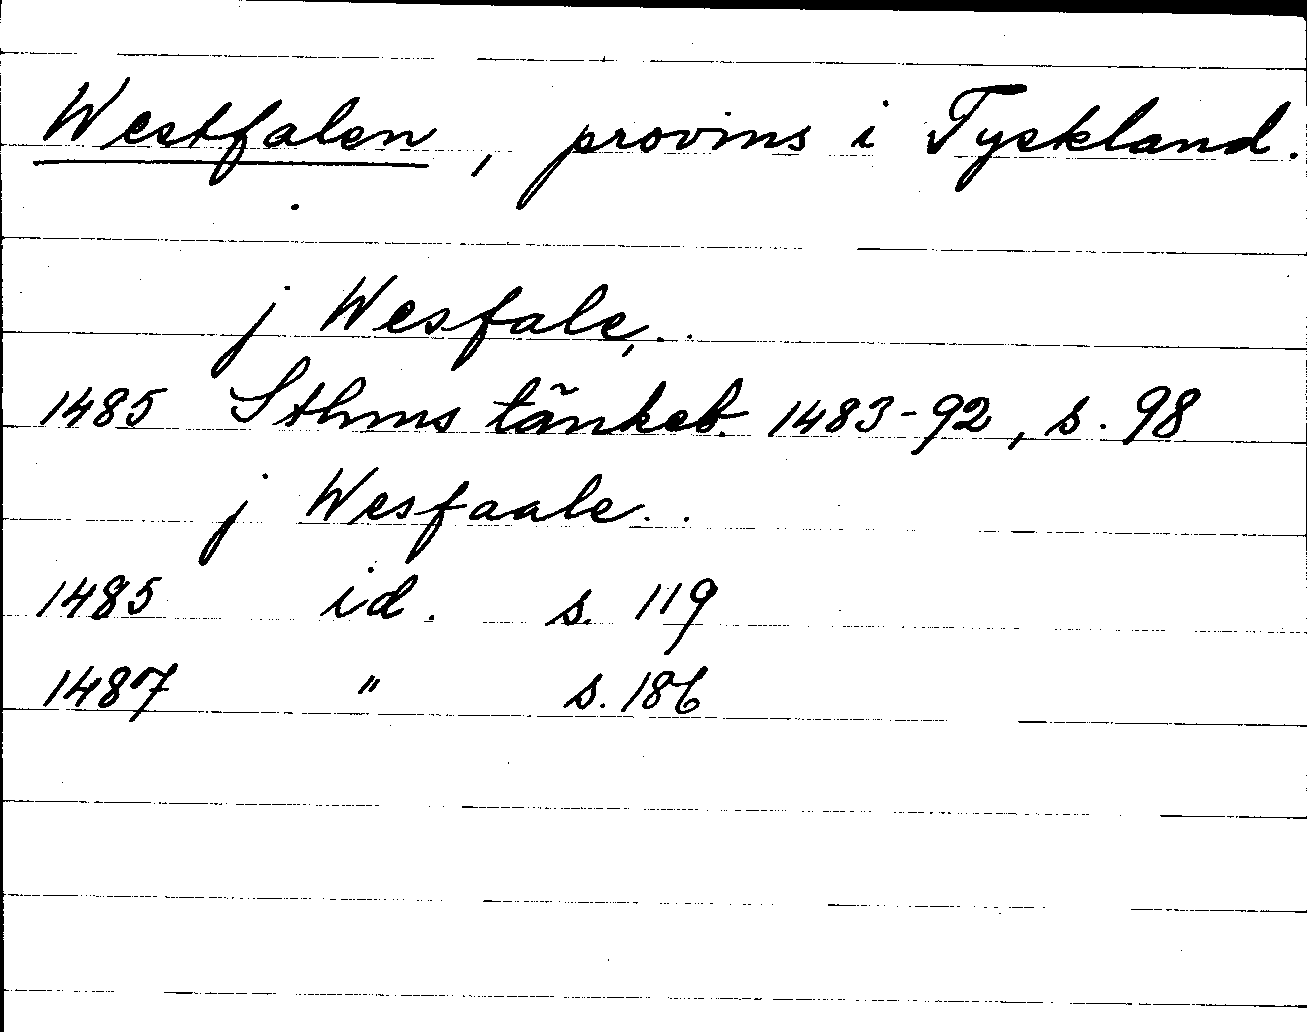 Westfalen, provins i Tyskland.
j Wesfale,..
1485 Sthms tänkeb. 1483-92, s. 98
j Wesfaale..
1485 id. s. 119
1487 " s. 186